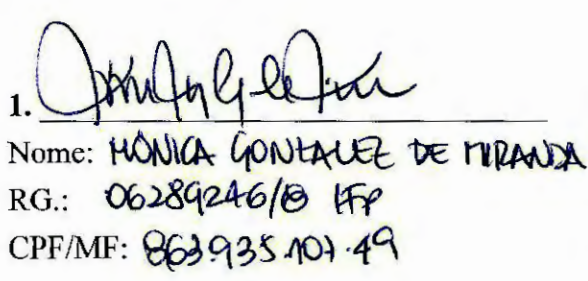 1.
Nome: MÔNICA GONZALEZ DE MIRANDA
RG.: 06289246/8 IFP
CPF/MF: 863.935.107.49